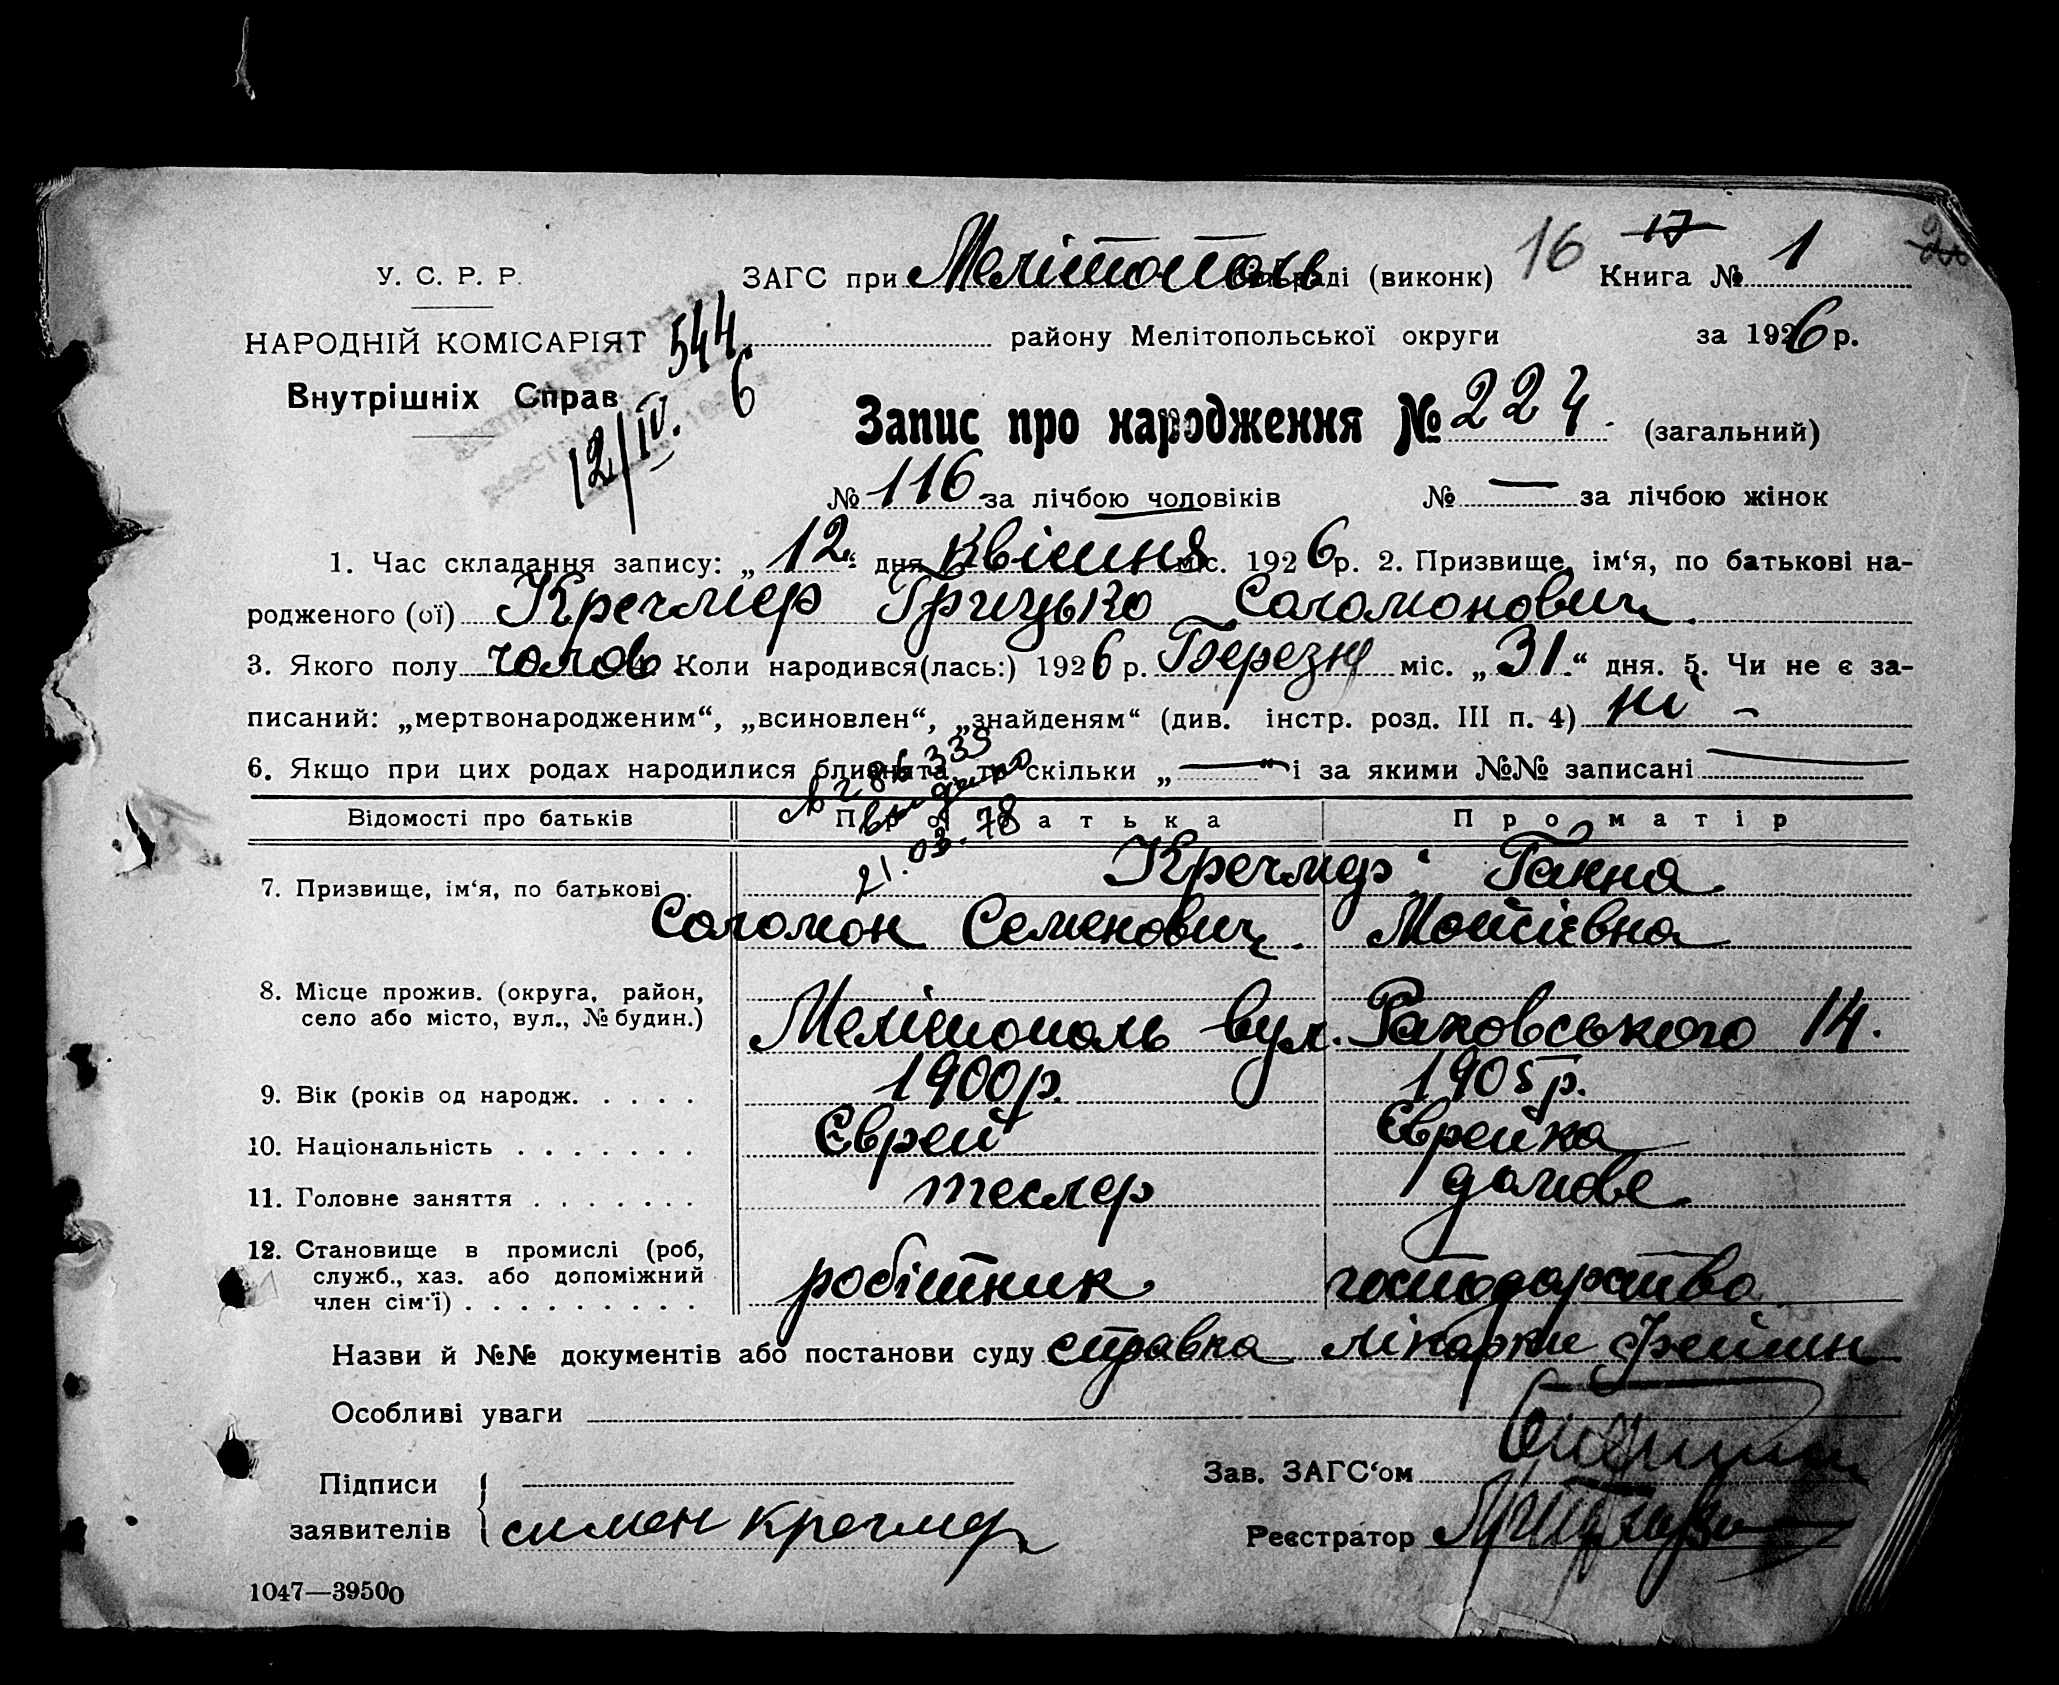 16 17
У. С. Р. Р. ЗАГС при Мелітополь раді (виконк) Книга № 1
НАРОДНІЙ КОМІСАРІЯТ 544 району Мелітопольської округи за 1926 р.
Внутрішніх Справ 6
12/IV.
Запис про народження № 224. (загальний)
№ 116 за лічбою чоловіків № — за лічбою жінок
1. Час складання запису: „12“ дня Квітня міс. 1926 р. 2. Призвище, ім‘я, по батькові на-
родженого (ої) Кречмер Грицько Соломонович.
3. Якого полу чолов. Коли народився(лась:) 1926 р. Березня міс. „31“ дня. 5. Чи не є за-
писаний: „мертвонародженим“, „всиновлен“, „знайденям“ (див. інстр. розд. III п. 4) ні –
6. Якщо при цих родах народилися близнята, то скільки „—“ і за якими №№ записані —
№ 286335
видано
21.03.78
Відомості про батьків Про батька Про матір
7. Призвище, ім‘я, по батькові . Кречмер Ганна
Соломон Семенович. Мойсієвна
8. Місце прожив. (округа, район,
село або місто, вул., № будин.) Мелітополь вул. Раковського 14.
9. Вік (років од народж. . . . . 1900р. 1905р.
10. Національність . . . . . . . Єврей Єврейка
11. Головне заняття . . . . . . . теслер домове
12. Становище в промислі (роб,
служб., хаз. або допоміжний
член сім‘ї) . . . . . . . . . робітник господарство
Назви й №№ документів або постанови суду справка лікарки
Особливі уваги
Зав. ЗАГС‘ом
Підписи
заявителів симен кречмер Реєстратор
1047—39500